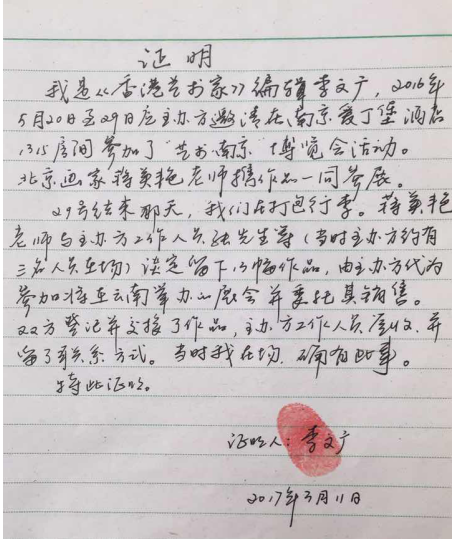 证明
我是《香港艺术家》编辑李文广，2016年
5月20日至29日应主办方邀请在南京爱丁堡酒店
1315房间参加了"艺术南京"博览会活动。
北京画家蒋英艳老师携作品一同参展。
29号结束那天，我们在打包行李。蒋英艳
老师与主办方工作人员张先生等（当时主办方约有
三名人员在场）决定留下13幅作品，由主办方代为
参加将在云南举办的展会并委托其销售。
双方登记并交接了作品，主办方工作人员签收、并
留了联系方式。当时我在场，确有此事。
特此证明。
证明人：李文广
2017年3月11日